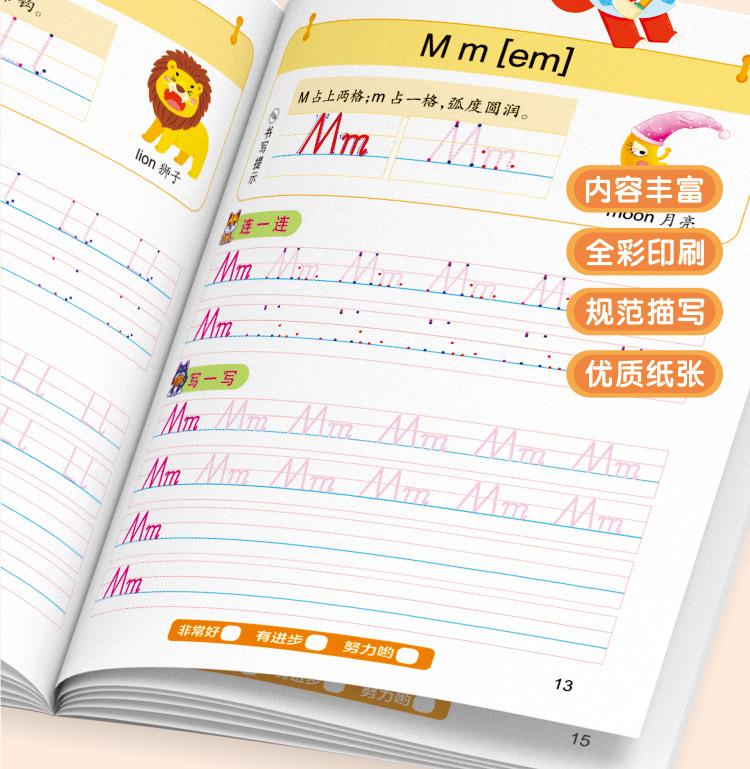 钩。
Ll
lion 狮子
Ll Ll Ll
Ll Ll
Ll Ll
M m [em]
M占上两格;m占一格,弧度圆润。
书写提示
Mm Mm
moon 月亮
连一连
Mm Mm Mm Mm M
Mm
写一写
Mm Mm Mm Mm Mm Mm
Mm Mm Mm Mm Mm Mm
Mm
Mm
非常好 有进步 努力哟
13
有进步 努力哟
15
内容丰富
全彩印刷
规范描写
优质纸张